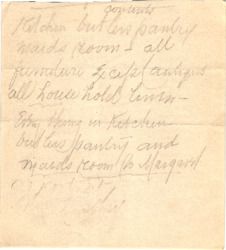 contents
Kitchen butlers pantry
maids room - all
furniture Except antiques
all house hold linen -
Every thing in Kitchen
butlers pantry and
maids room to Margaret